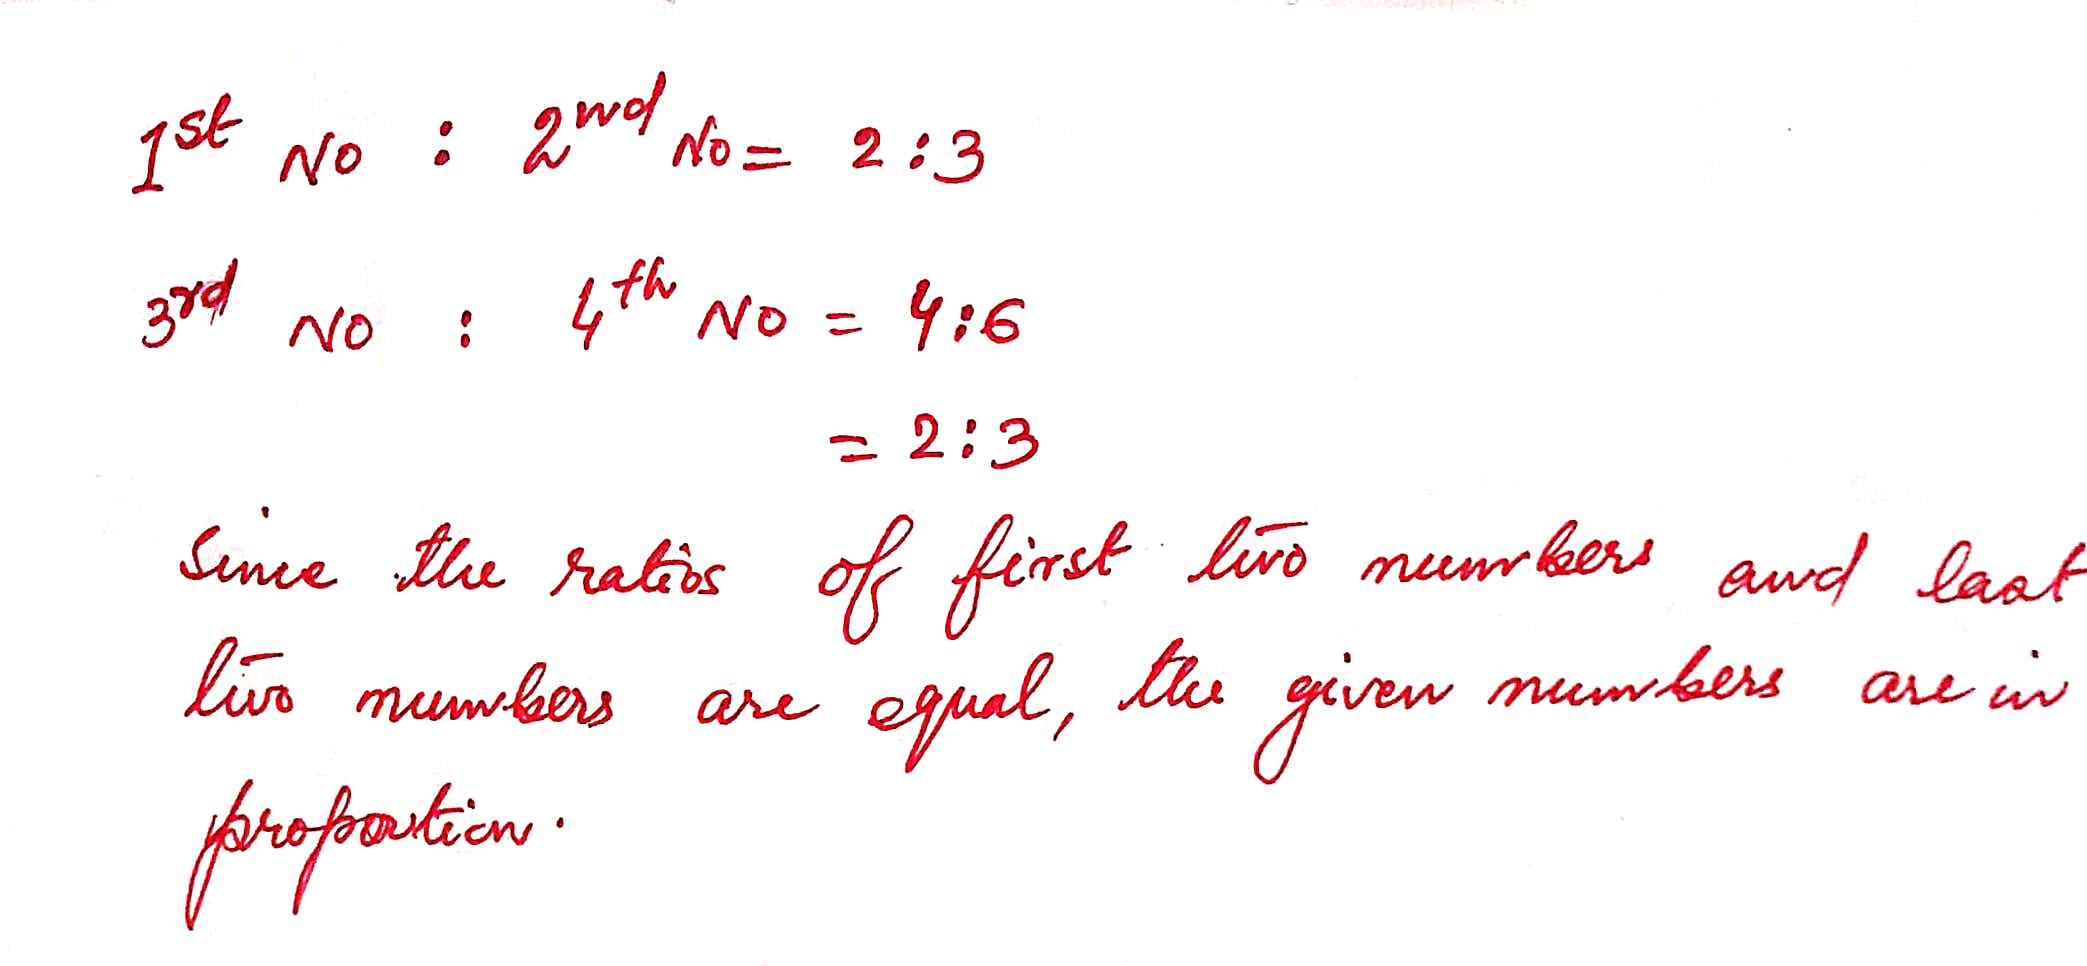 1st No : 2nd No = 2:3
3rd No : 4th No = 4:6
= 2:3
Since the ratios of first two numbers and last
two numbers are equal, the given numbers are in
proportion.